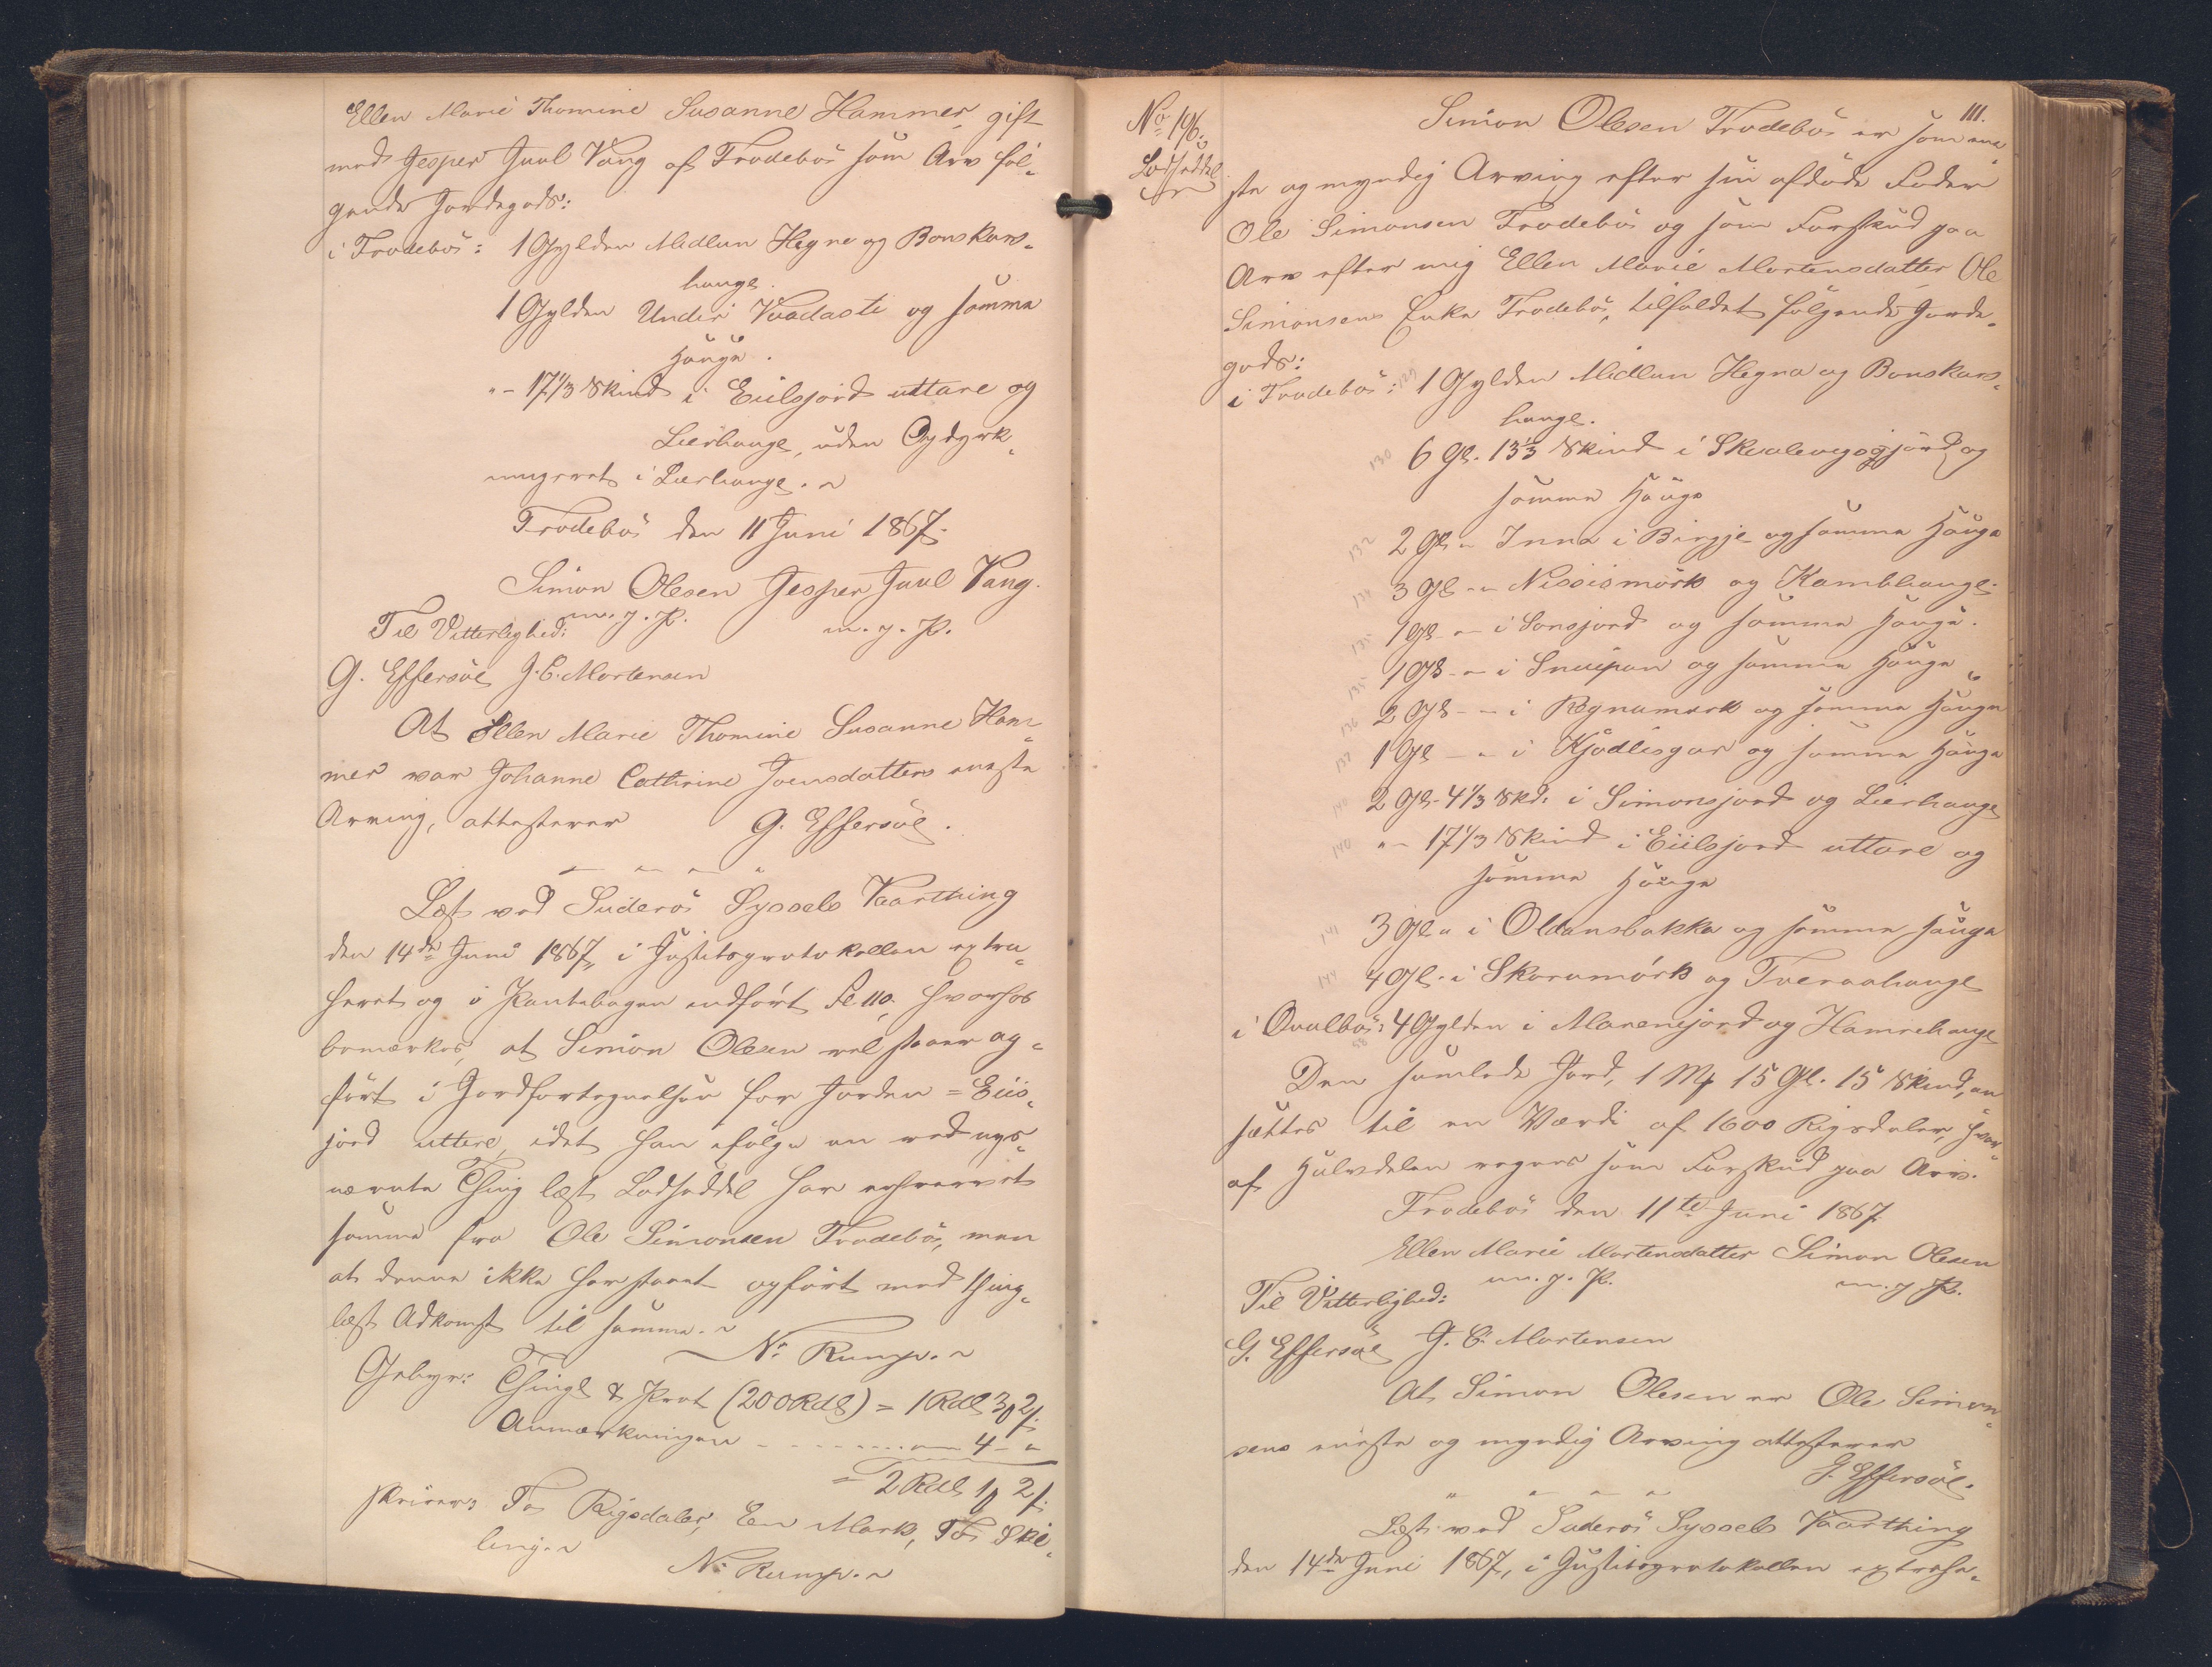 Ellen Marie Thomine Susanne Hammer, gift
med Jesper Juul Vang af Trodebö som Arv føl-
gende Jordegods:
i Trodebö: 1 Gylden Midlun Hegne og Bonskars-
hauge.
1 Gylden Under Vradasti og samme
Hauge.
"- 17 1/3 Skind i Eiilsjord uttare og
Lierhauge, uden Opdyrk-
ningsret i Lierhauge.
Trodebö den 11 Juni 1867.
Simon Olesen Jesper Juul Vang.
m. f. P. m. f. P.
Til Vitterlighed:
G. Effersöe J. C. Mortensen
At Ellen Marie Thomine Susanne Ham-
mer var Johanne Cathrine Joensdatters eneste
Arving, attesterer G. Effersöe.
Læst ved Suderö Syssels Vaarthing
den 14de Juni 1867, i Justitsprotokollen extra-
heret og i Pantebogen indført Fol 110, hvorhos
bemærkes, at Simon Olesen vel staaer op-
ført i Jordfortegnelsen for Jorden = Eiis-
jord uttere, idet han ifølge en ved nys-
nævnte Thing læst Lodseddel har erhvervet
samme fra Ole Simonsen Trodebö, men
at denne ikke har staaet opført med thing-
læst Adkomst til samme.
N. Rump.
Gebyr: Thingl & Prot (200 Rdl) = 1 Rdl 3 ꝳ 2 ß
Anmærkningen - - - - 4 -
= 2 Rdl 1 ꝳ 2 ß
skriver: To Rigsdaler, En Mark, To Skil-
ling.
N. Rump.
111.
No 196.
Lodseddel
Simon Olesen Trodebö er som ene-
ste og myndig Arving efter sin afdøde Fader
Ole Simonsen Trodebö og som Forskud paa
Arv efter mig Ellen Marie Mortensdatter, Ole
Simonsens Enke Trodebö, tilfaldet følgende Jorde-
gods:
i Trodebö: 129 1 Gylden Midlun Hegna og Bonskars-
hauge.
130 6 Gl. 13 1/3 Skind i Skualevogsgjörd og
samme Hauge
132 2 Gl - Inna i Birgje og samme Hauge
134 3 Gl - Nissismörk og Kambhauge
135 1 Gl - i Sonsjord og samme Hauge.
135 1 Gl - i Sneipan og samme Hauge
136 2 Gl - i Rögnamørk og samme Hauge
137 1 Gl - i Kjødlisgar og samme Hauge
140 2 Gl - 4 1/3 Skd: i Simonsjord og Lierhauge
140 "- 17 1/3 Skind i Eiilsjord uttare og
samme Hauge
141 3 Gl " i Oldansbakke og samme Hauge
144 4 Gl - i Skoramörk og Tveraahauge
i Qvalbö: 58 4 Gylden i Marenejord og Hamrehauge
Den samlede Jord, 1 Mk 15 Gl. 15 Skind, an-
sættes til en Værdi af 1600 Rigsdaler, hvor-
af Halvdelen regnes som Forskud paa Arv.
Trodebö den 11te Juni 1867.
Ellen Marie Mortensdatter Simon Olesen
m. f. P. m. f. P.
Til Vitterlighed:
G. Effersöe J. C. Mortensen
At Simon Olesen er Ole Simon-
sens eneste og myndig Arving attesterer
G. Effersöe.
Læst ved Suderö Syssels Vaarthing
den 14de Juni 1867, i Justitsprotokollen extrahe-